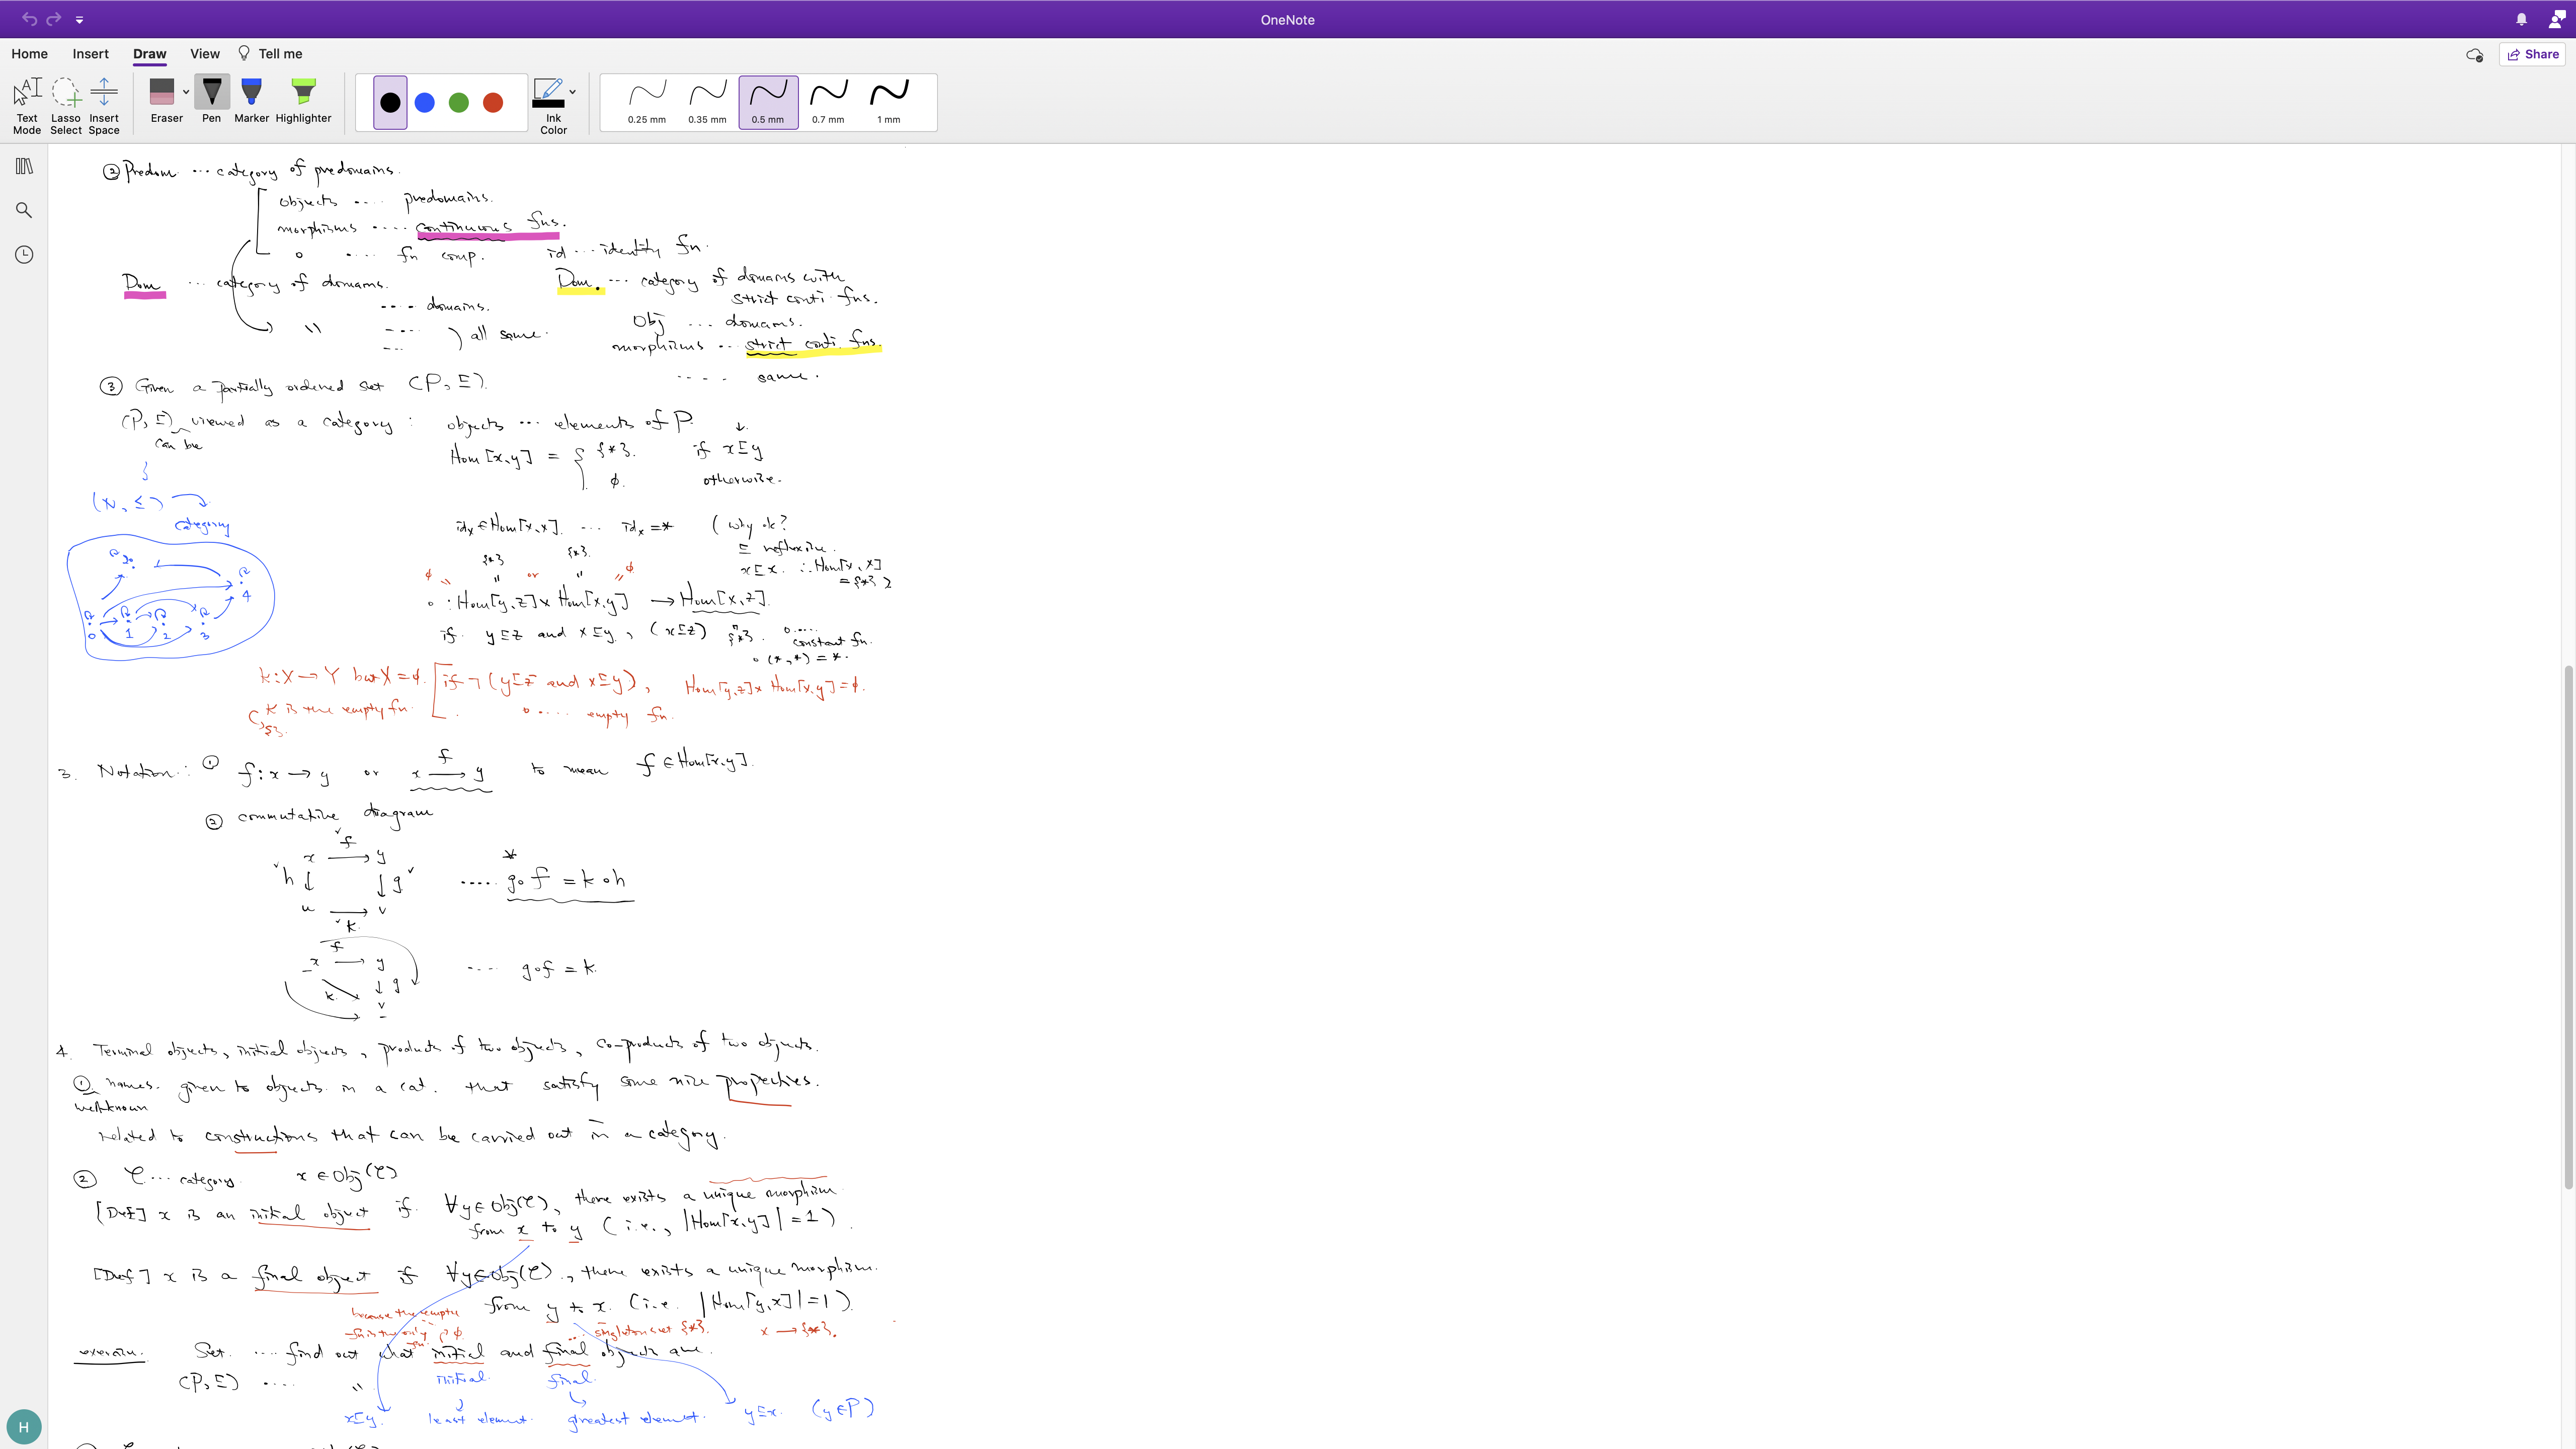 OneNote
Home Insert Draw View Tell me
Share
Text Mode
Lasso Select
Insert Space
Eraser
Pen
Marker
Highlighter
Ink Color
0.25 mm
0.35 mm
0.5 mm
0.7 mm
1 mm
② Predom ... category of predomains.
objects .... predomains.
morphisms .... continuous fns.
o .... fn comp. id ... identity fn.
Dom ... category of domains.
.... domains.
" .... ) all same.
Dom. ... category of domains with
strict conti. fns.
Obj ... domains.
morphisms ... strict conti. fns.
..... same.
③ Given a partially ordered set (P, ⊑).
(P, ⊑) viewed as a category : objects ... elements of P.
can be
Hom[x,y] = { {*}. if x⊑y
φ. otherwise.
(N, ≤)
category
0 1 2 3 4
id_x ∈ Hom[x,x]. ... id_x = * ( why ok?
⊑ reflexive.
x⊑x. ∴ Hom[x,x]
= {*} )
{*} {*}
φ " or " φ
o : Hom[y,z] x Hom[x,y] → Hom[x,z].
if y⊑z and x⊑y, (x⊑z) {*}. o....
constant fn.
o (*,*) = *.
k: X → Y but X = φ. [ if ¬(y⊑z and x⊑y), Hom[y,z] x Hom[x,y] = φ.
k is the empty fn. o .... empty fn.
{}.
3. Notation: ① f: x → y or x f→ y to mean f ∈ Hom[x,y].
② commutative diagram
x f→ y
h ↓ ↓ g ..... g o f = k o h
u → v
k
f
x → y .... g o f = k.
k ↓ g
v
4. Terminal objects, initial objects, products of two objects, co-products of two objects.
① names. given to objects in a cat. that satisfy some nice properties.
well-known
related to constructions that can be carried out in a category.
② C ... category. x ∈ Obj(C)
[Def] x is an initial object if ∀y ∈ Obj(C), there exists a unique morphism
from x to y (i.e., |Hom[x,y]| = 1).
[Def] x is a final object if ∀y ∈ Obj(C), there exists a unique morphism.
from y to x. (i.e. |Hom[y,x]| = 1).
because the empty
fn is the only φ.
fn.
... singleton set {*}. x → {*}.
exercise. Set .... find out what initial and final objects are.
(P, ⊑) .... " initial. final.
x⊑y. least element. greatest element. y⊑x. (y ∈ P)
H